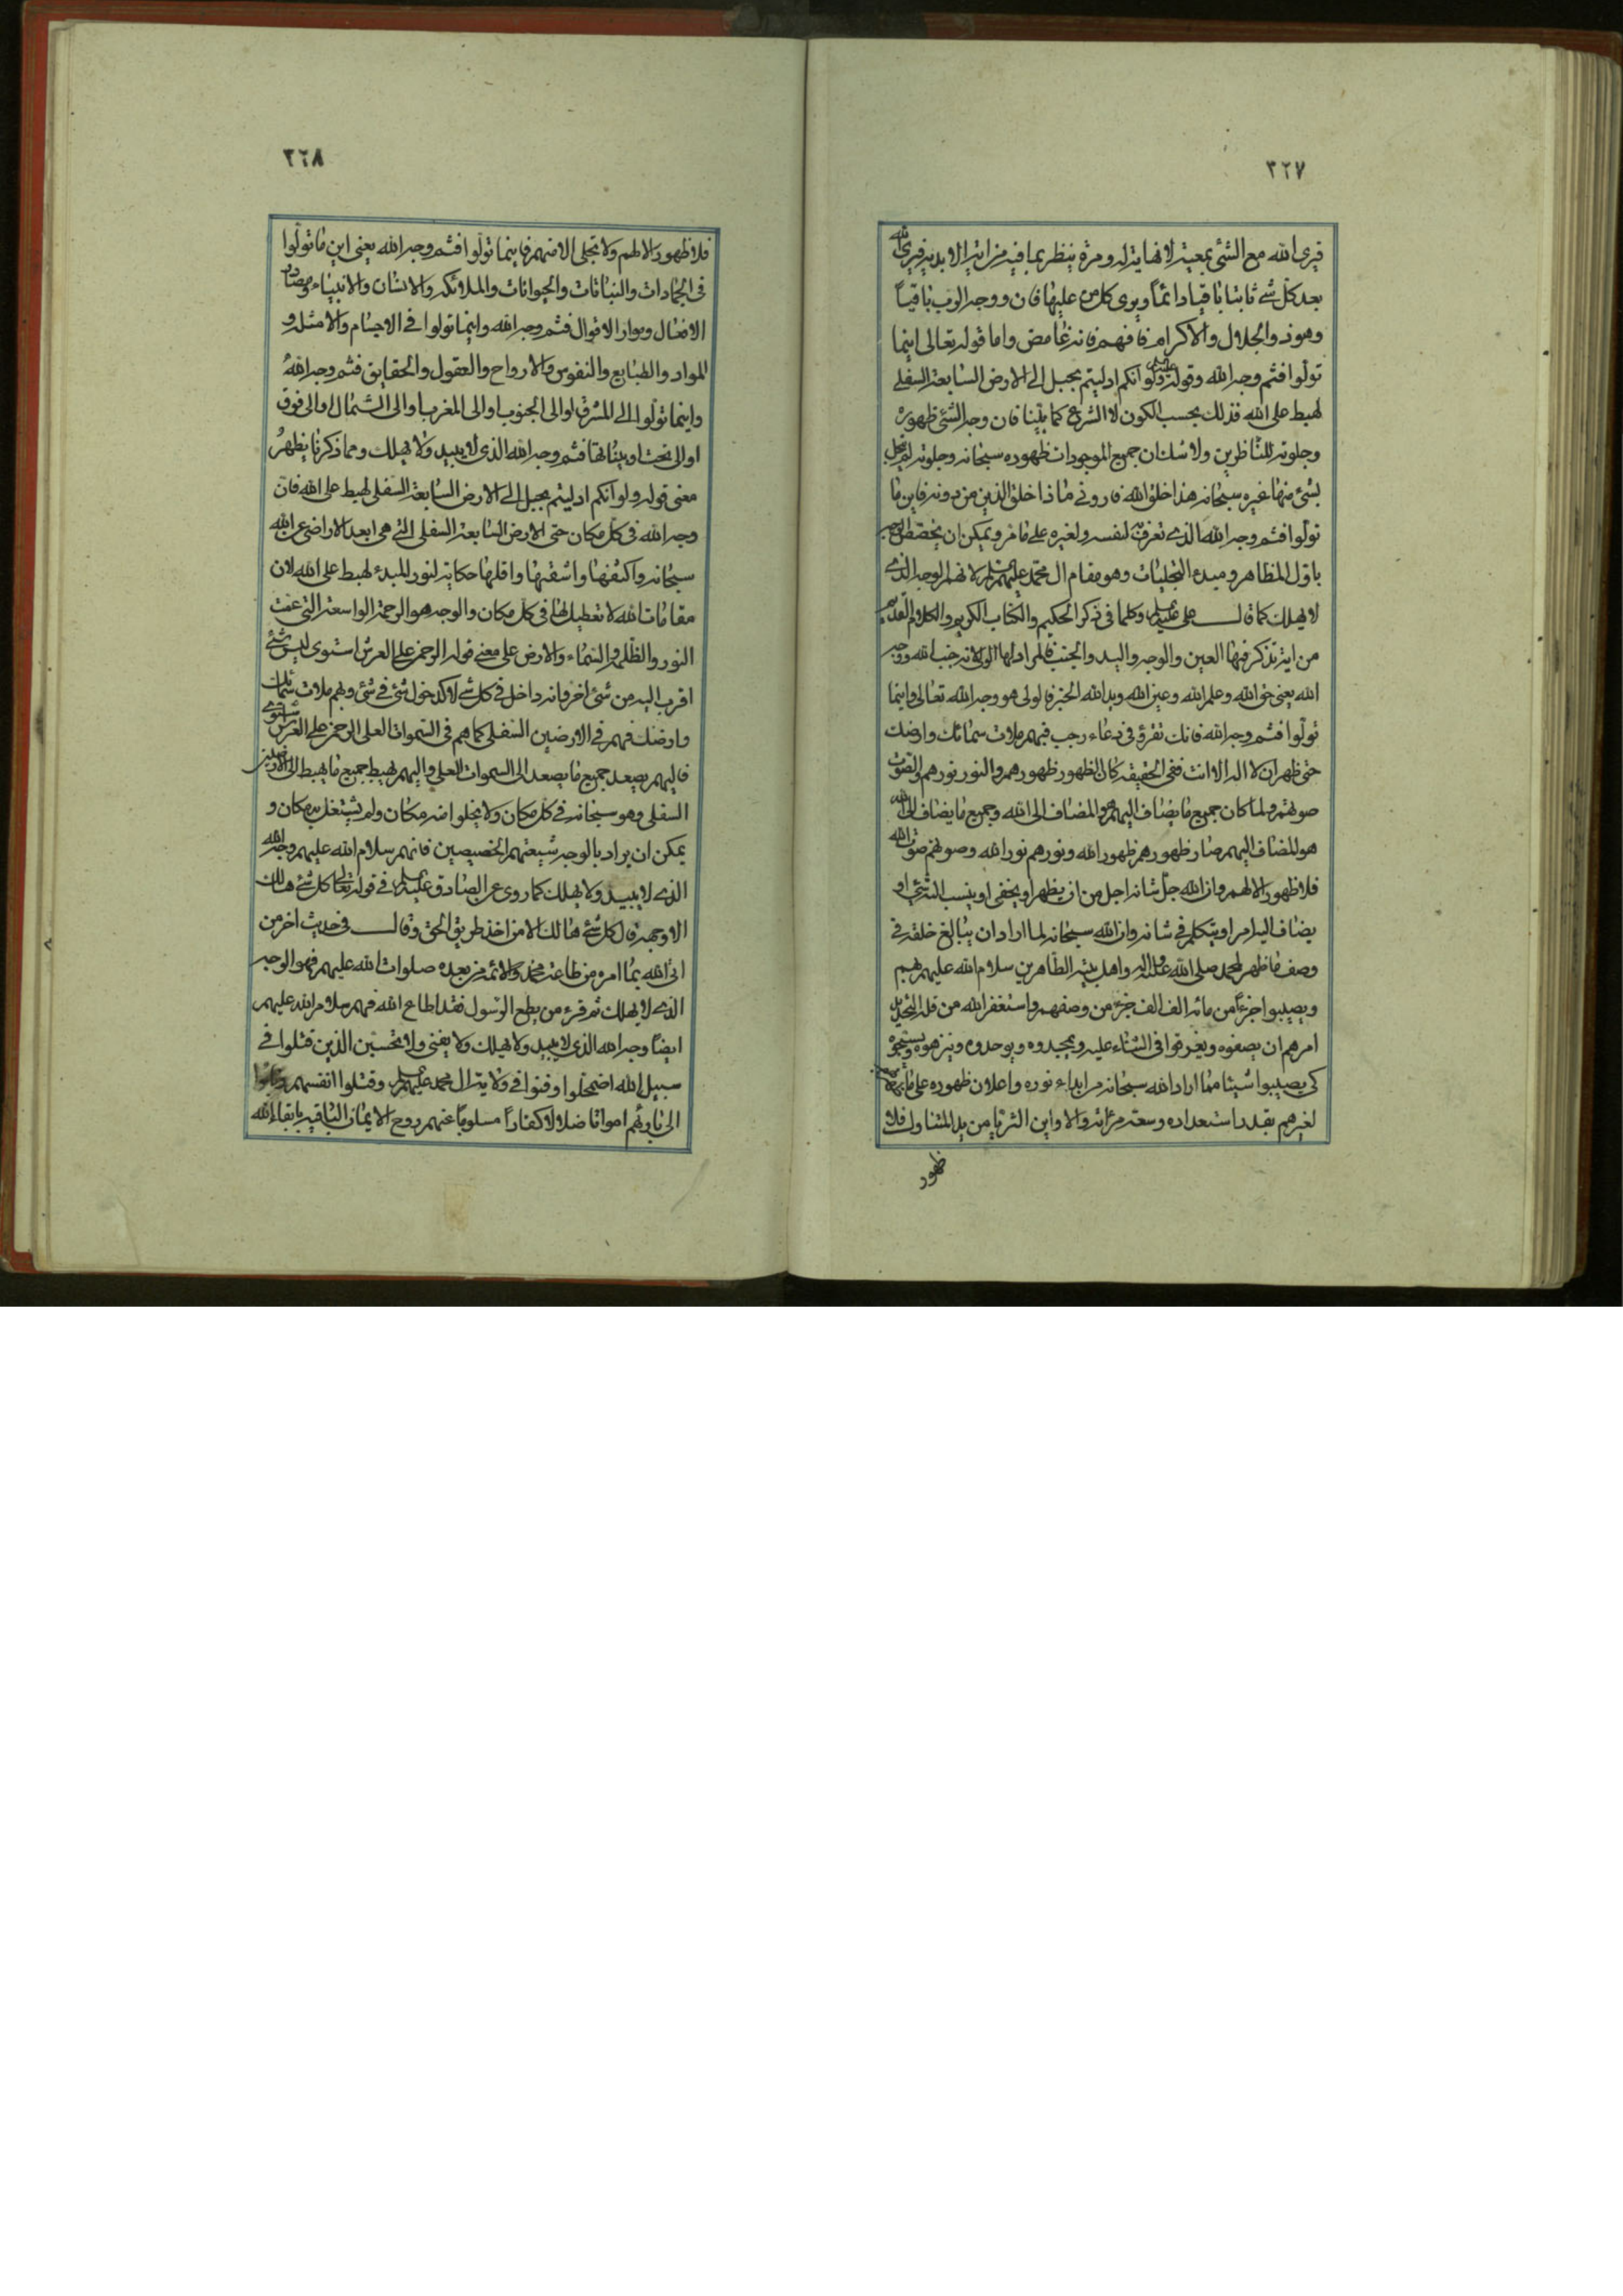 ٣٢٧
فيرى الله مع الشئ بمعية لا نهاية له ومرة ينظر بما فيه من اية الابدية فيرى الله
بعد كل شئ ثابتا باقيا دائماً ويرى كل من عليها فان ووجه الرب باقياً
وهو ذو الجلال والاكرام فافهم فانه غامض واما قوله تعالى اينما
تولوا فثم وجه الله وقوله ولو انكم ادليتم بحبل الى الارض السابعة السفلى
لهبط على الله فذلك بحسب الكون لا الشرع كما بينا فان وجه الشئ ظهوره
وجلوته للناظرين ولا شك ان جميع الموجودات ظهوره سبحانه وجلوته لم يتجل
بشئ منها غيره سبحانه هذا خلق الله فارونى ماذا خلق الذين من دونه فاين ما
تولوا فثم وجه الله الذى تعرف به لنفسه ولغيره على ما مر ويمكن ان يخصص الوجه
باول المظاهر ومبدء التجليات وهو مقام ال محمد عليهم السلم لانهم الوجه الذى
لا يهلك كما قال على عليه السلم وكلما فى ذكر الحكيم والكتاب الكريم والكلام القديم
من اية تذكر فيها العين والوجه واليد والجنب فالمراد لها الولى لانه جنب الله ووجه
الله يعنى حق الله وعلم الله وعين الله ويد الله الخبر فالولى هو وجه الله تعالى واينما
تولوا فثم وجه الله فانك تقرؤ فى دعاء رجب فبهم ملات سمائك وارضك
حتى ظهر ان لا اله الا انت ففى الحقيقه كان الظهور ظهورهم والنور نورهم والصوت
صوتهم ولما كان جميع ما يضاف اليهم هو المضاف الى الله وجميع ما يضاف الى الله
هو المضاف اليهم صار ظهورهم ظهور الله ونورهم نور الله وصوتهم صوت الله
فلا ظهور الا لهم وان الله جل شانه اجل من ان يظهر او يخفى او ينسب اليه شئ او
يضاف اليه امر او يتكلم فى شانه وان الله سبحانه لما اراد ان يبالغ خلقه فى
وصف ما ظهر لمحمد صلى الله عليه واله واهل بيته الطاهرين سلام الله عليهم بهم
ويصيبوا جزءاً من مائة الف الف جزء من وصفهم واستغفر الله من قلة التحديد
امرهم ان يصفوه ويغرقوا فى الثناء عليه ويمجدوه ويوحدوه وينزهوه ويسبحوه
كى يصيبوا شيئا مما اراد الله سبحانه من ابداء نوره واعلان ظهوره على
لغيرهم بقدر استعداده وسعة مراته والا واين الثريا من يد المتناول فلا
ظهور
٣٢٨
فلا ظهور الا لهم ولا تجلى الا منهم فاينما تولوا فثم وجه الله يعنى اين ما تولوا
فى الجمادات والنباتات والحيوانات والملائكة والانسان والانبياء ومصادر
الافعال وموارد الاقوال فثم وجه الله واينما تولوا فى الاجسام والامثله و
المواد والطبايع والنفوس والارواح والعقول والحقايق فثم وجه الله
واينما تولوا الى المشرق او الى الجنوب او الى المغرب او الى الشمال او الى فوق
او الى تحت او بيناتها فثم وجه الله الذى لا يبيد ولا يهلك ومما ذكرنا يظهر
معنى قوله ولو انكم ادليتم بحبل الى الارض السابعة السفلى لهبط على الله فان
وجه الله فى كل مكان حتى الارض السابعة السفلى التى هى ابعد الاراضى عن الله
سبحانه واكثفها واشقيها واقلها حكاية لنور المبدء لهبط على الله لان
مقامات الله لا تعطيل لها فى كل مكان والوجه هو الرحمة الواسعة التى عمت
النور والظلمة والسماء والارض على معنى قوله الرحمن على العرش استوى ليس شئ
اقرب اليه من شئ اخر فانه داخل فى كل شئ لا كدخول شئ فى شئ وبهم ملات سمائك
وارضك فهم فى الارضين السفلى كما هم فى السموات العلى الرحمن على العرش استوى
فاليهم يصعد جميع ما يصعد الى السموات العلى واليهم يهبط جميع ما يهبط الى الارضين
السفلى وهو سبحانه فى كل مكان ولا يخلوا منه مكان ولم يشتغل به مكان و
يمكن ان يراد بالوجه شيعتهم الخصيصين فانهم سلام الله عليهم وجه الله
الذى لا يبيد ولا يهلك كما روى عن الصادق عليه السلم فى قوله تعالى كل شئ هالك
الا وجهه قال كل شئ هالك الا من اخذ طريق الحق وقال فى حديث اخر من
اتى الله بما امره من طاعة محمد والائمة من بعده صلوات الله عليهم فهو الوجه
الذى لا يهلك ثم قرء من يطع الرسول فقد اطاع الله فهم سلام الله عليهم
ايضاً وجه الله الذى لا يبيد ولا يهلك ولا يفنى ولا تحسبن الذين قتلوا فى
سبيل الله اضمحلوا وفنوا فى ولاية ال محمد عليهم السلم وقتلوا انفسهم
الى بارئهم امواتا ضلالا كفاراً مسلوباً عنهم روح الايمان الباقيه بابقاء الله